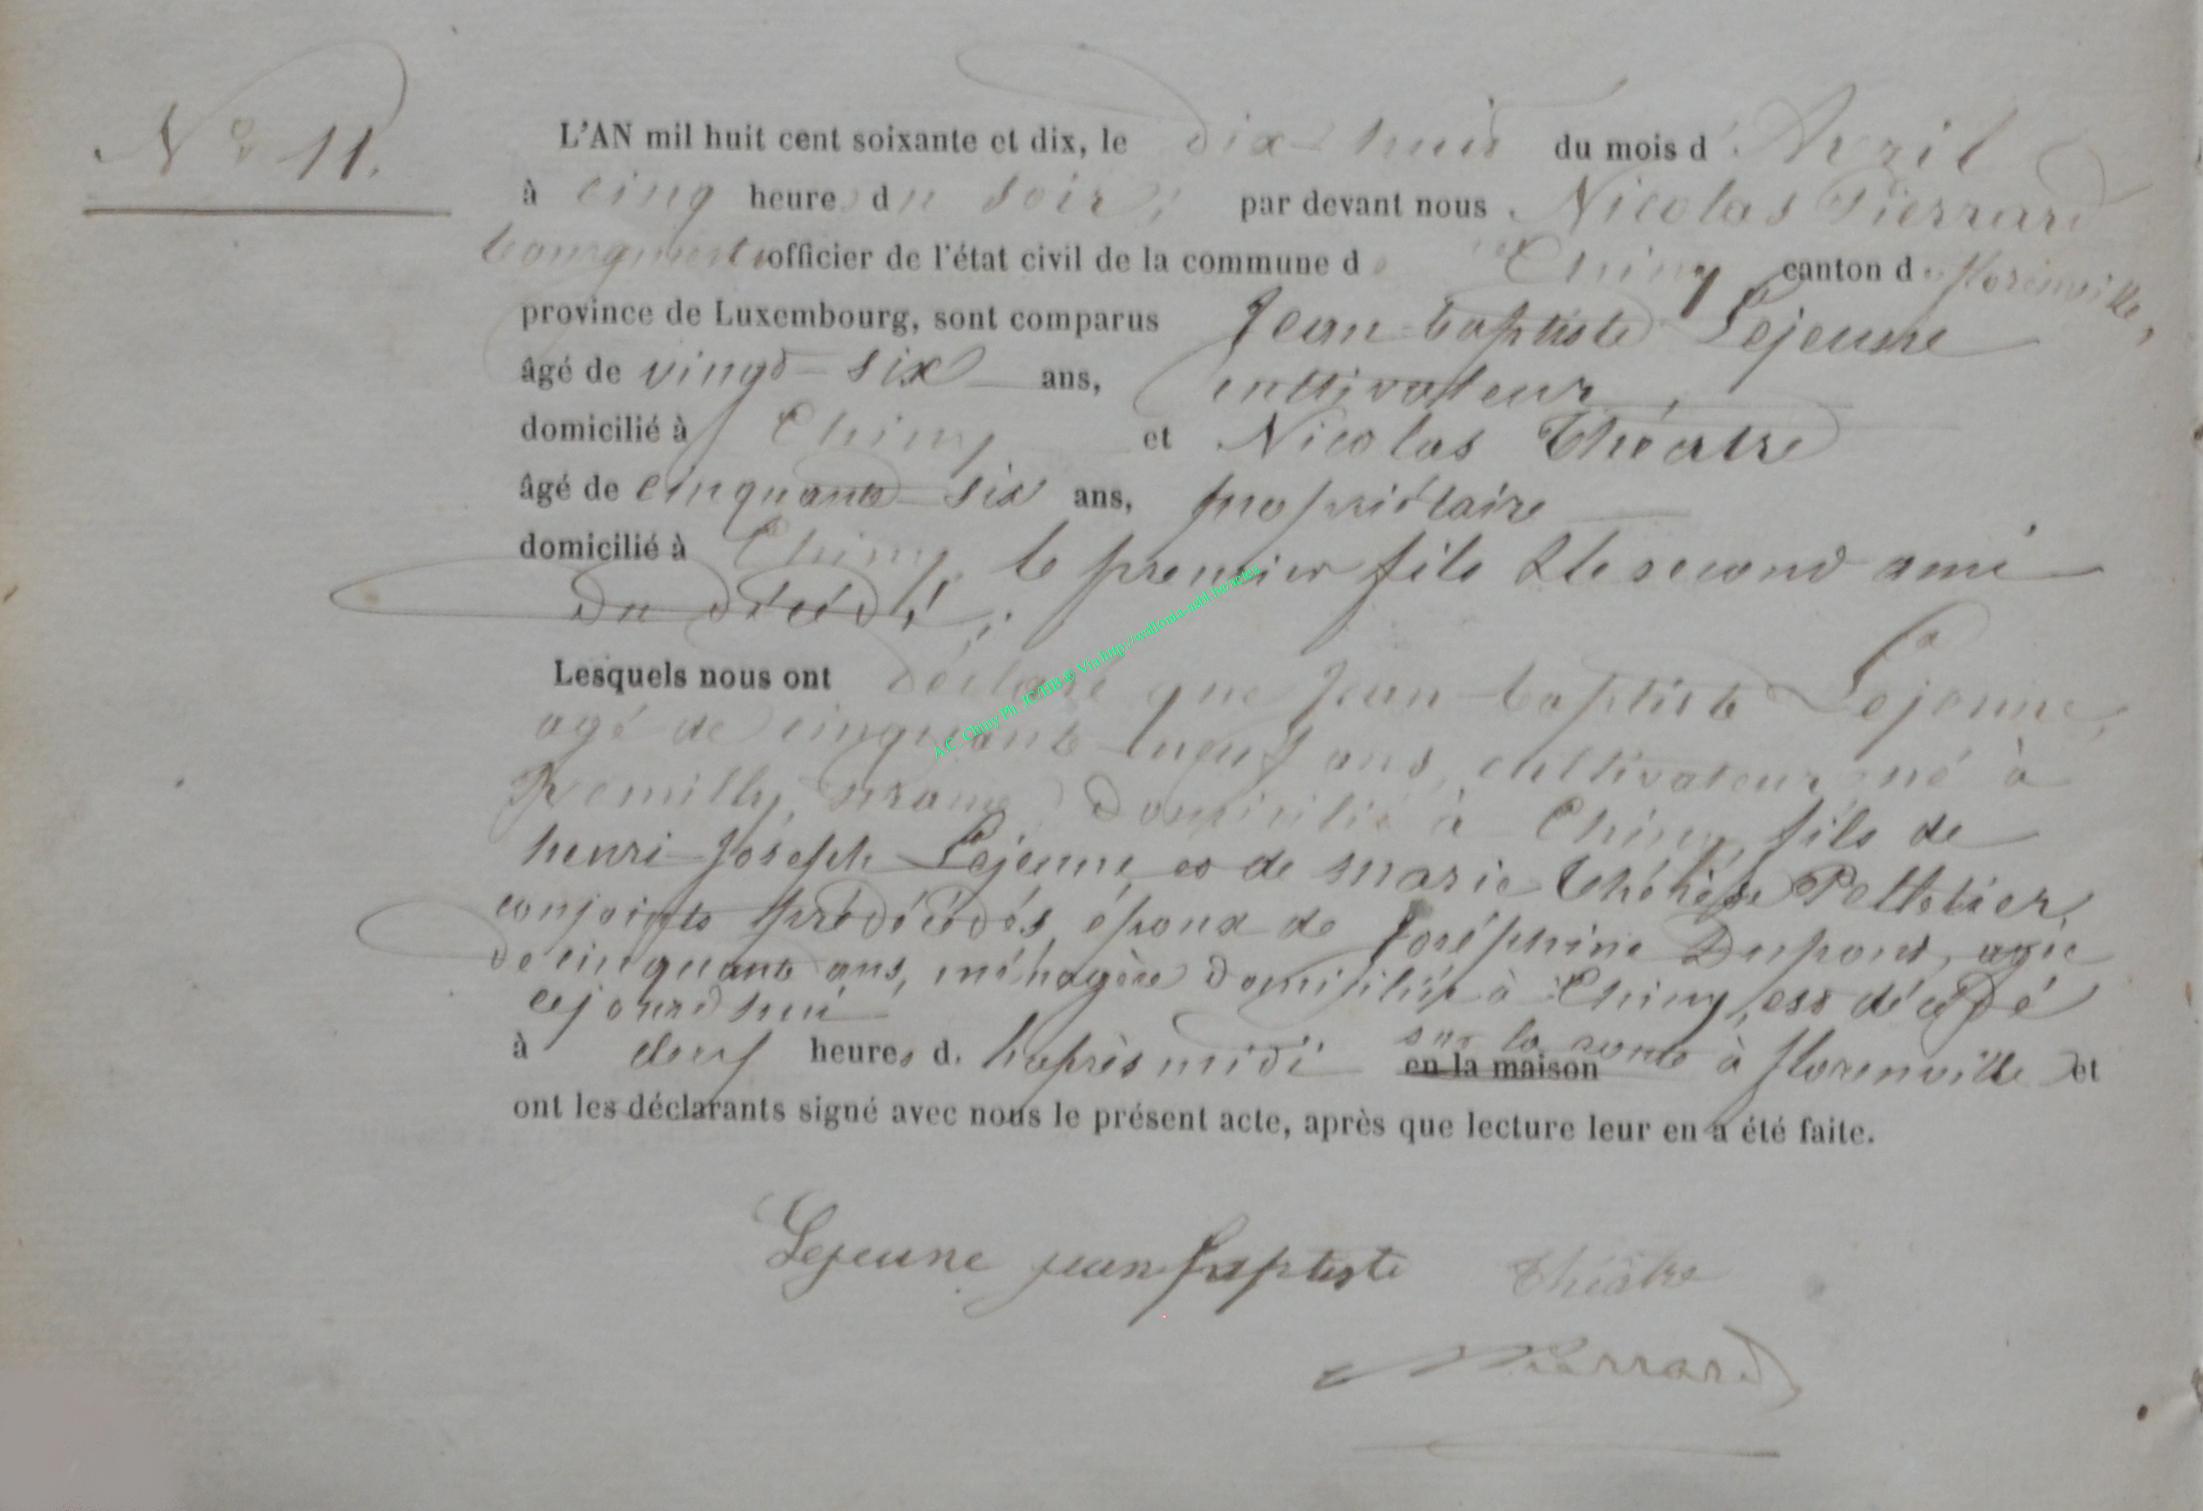 N° 11.
L'AN mil huit cent soixante et dix, le dix-huit du mois d'Avril
à cinq heures du soir, par devant nous Nicolas Pierrard
bourgmestre officier de l'état civil de la commune de Chiny canton de florenville,
province de Luxembourg, sont comparus Jean-baptiste Lejeune
âgé de vingt-six ans, cultivateur,
domicilié à Chiny et Nicolas Théatre
âgé de cinquante-six ans, propriétaire
domicilié à Chiny, le premier fils & le second ami
du décédé;
Lesquels nous ont déclaré que Jean-baptiste Lejeune,
agé de cinquante-neuf ans, cultivateur, né à
Remilly, domicilié à Chiny, fils de
henri-Joseph Lejeune et de marie thérèse Pelletier,
conjoints prédécédés, époux de Joséphine Dupont, agée
de cinquante ans, ménagère domiciliée à Chiny, est décédé
cejourd'hui
à deux heures d. l'après midi sur la route
en la maison à florenville et
ont les déclarants signé avec nous le présent acte, après que lecture leur en a été faite.
A.C. Chiny Ph. JC-HB @ Via http://wallonia-asbl.be/actes
Lejeune jean baptiste Théatre
NPierrard